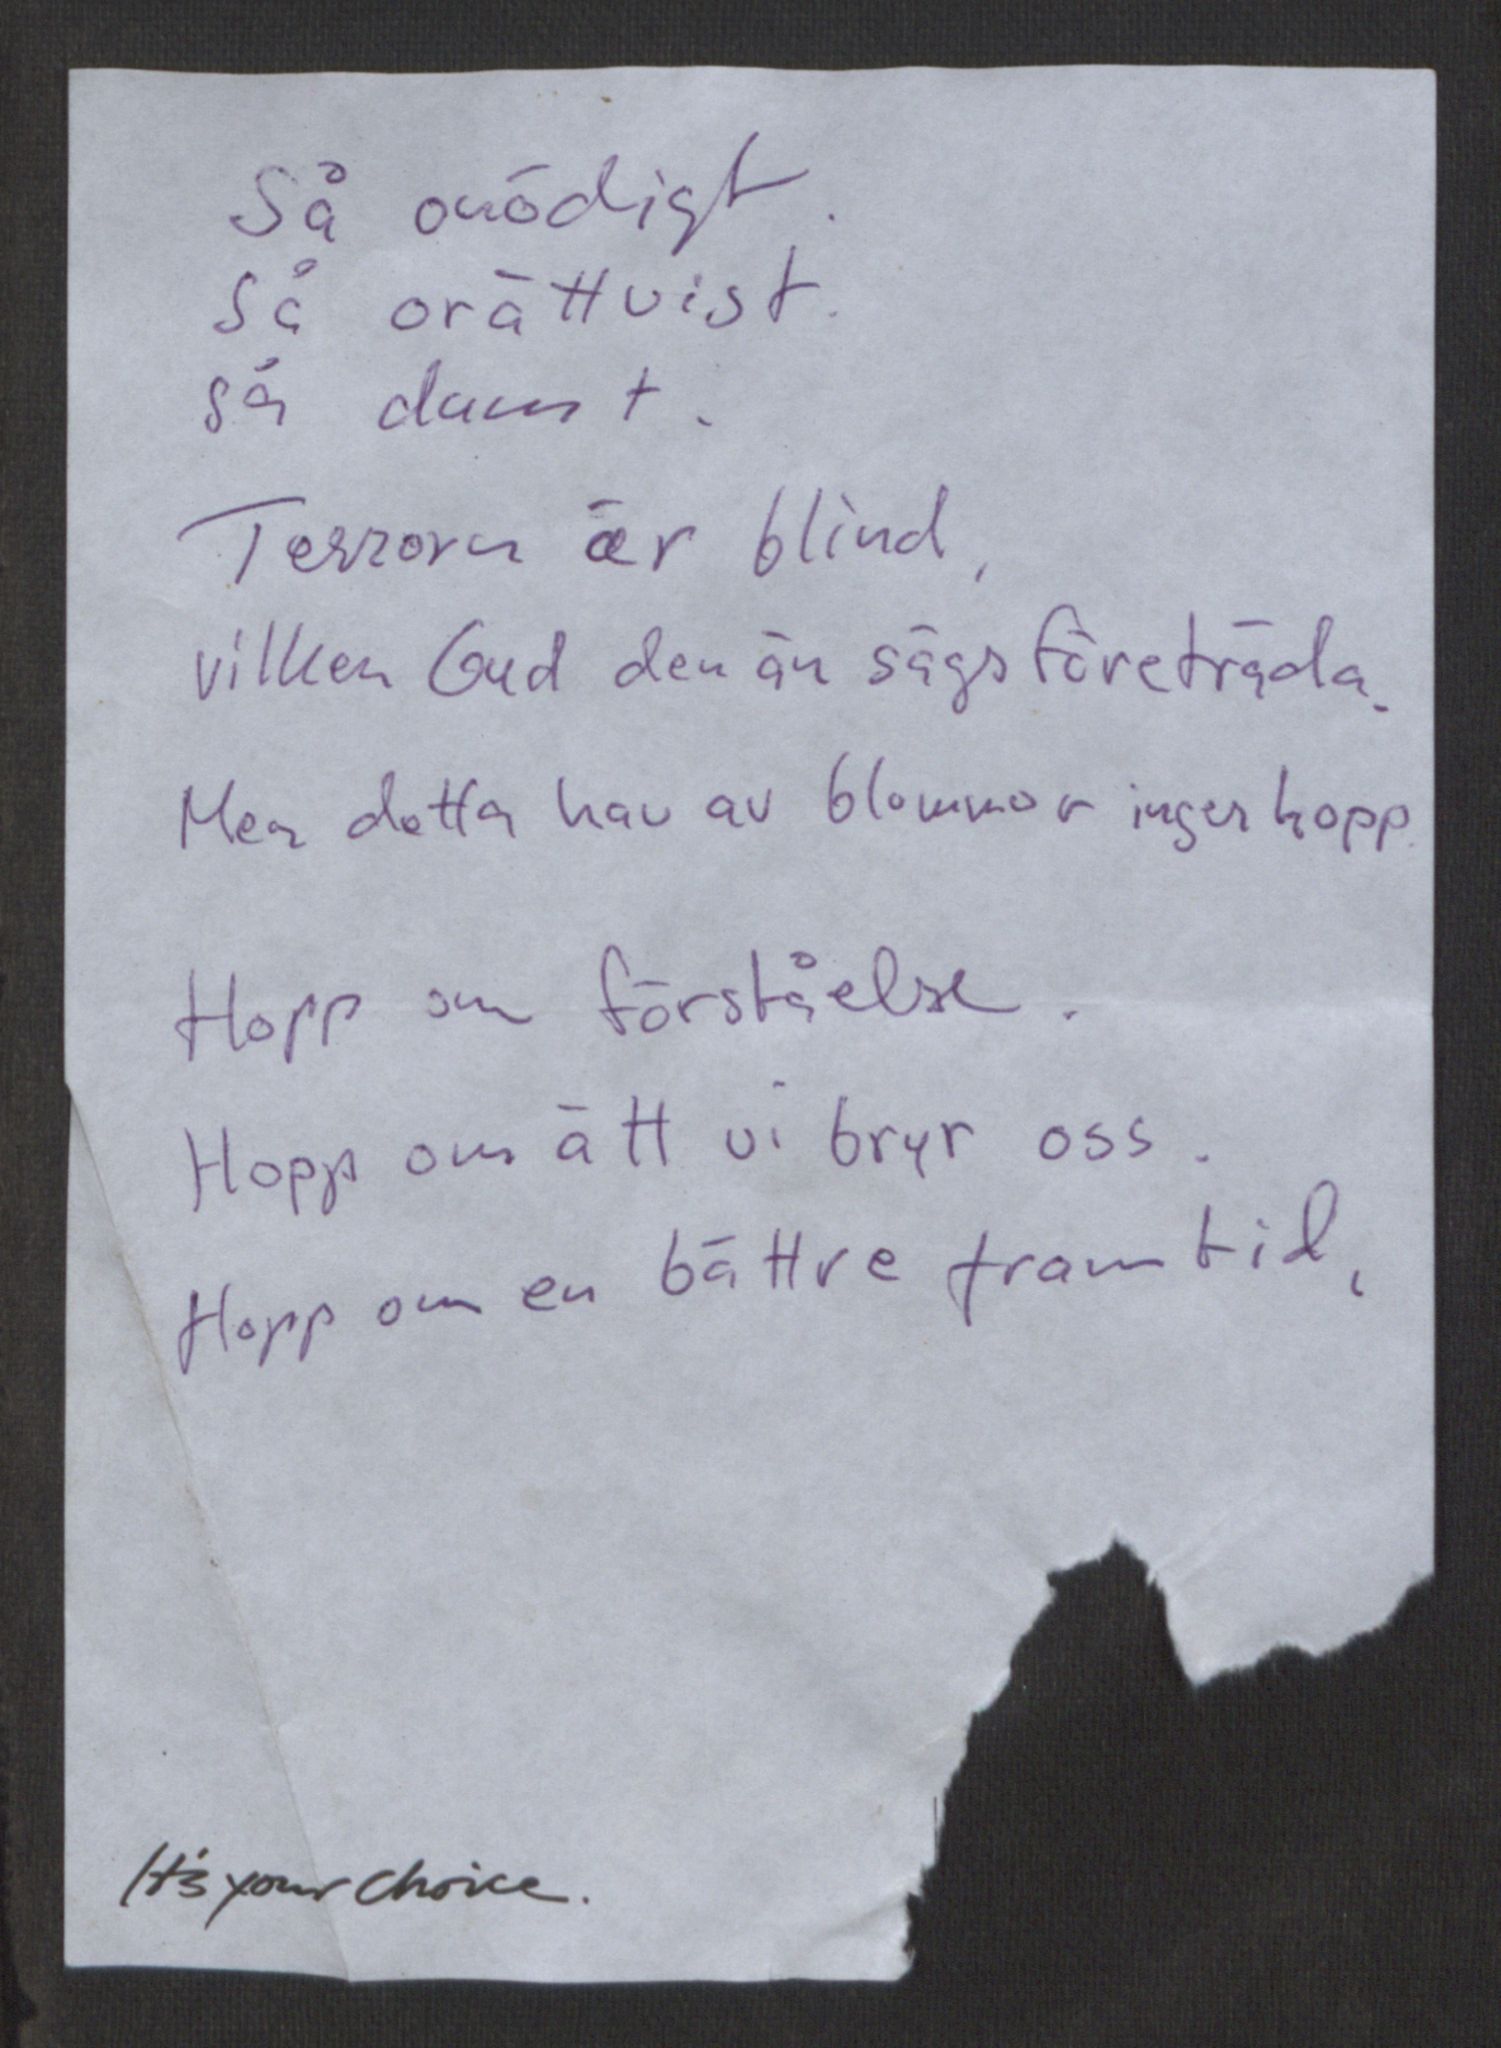 Så onödigt.
Så orättvist.
Så dumt.
Terrorn är blind,
vilken Gud den än sägs företräda.
Men detta hav av blommor inger hopp.
Hopp om förståelse.
Hopp om ätt vi bryr oss.
Hopp om en bättre framtid,
It's your choice.